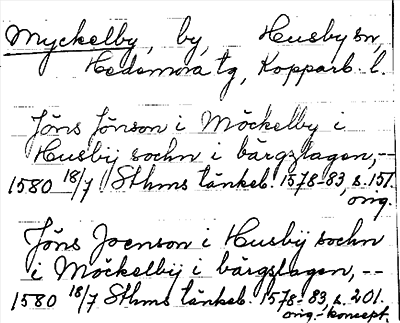 Myckelby, by, Husby sn,
Hedemora tg, Kopparb. l.
Jöns Jönson i Möckelby i
Husbij sochn i bärgzlagen, --
1580 18/7 Sthms tänkeb. 1578-83, s. 151.
orig.
Jöns Joenson i Husbij sochn
i Möckelbij i bärgslagen, --
1580 18/7 Sthms tänkeb. 1578-83, s. 201.
orig.-koncept.